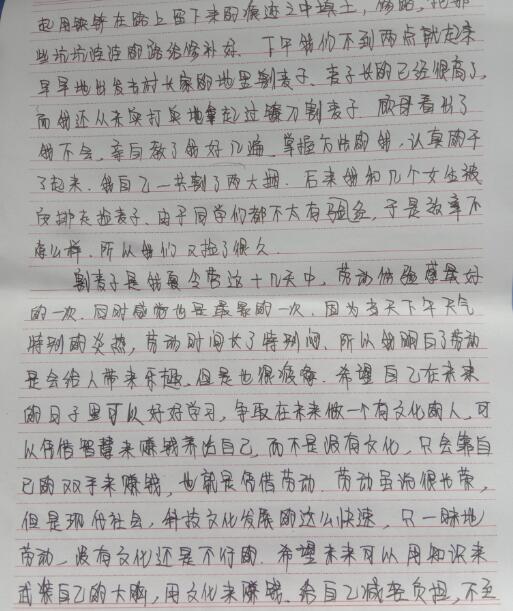 起用铁锹在路上留下来的痕迹之中填土,修路,把那
些坑坑洼洼的路给修补好。下午我们不到两点就起来
早早地出发去村长家的地里割麦子、麦子长的已经很高了,
而我还从未实打实地拿起过镰刀割麦子 顾母看出了
我不会,亲自教了我好几遍、掌握方法的我,认真的干
了起来.我自己一共割了两大捆.后来我和几个女生被
安排去捡麦子、由于同学们都不太有经验,于是效率不
怎么样.所以我们又捡了很久.
割麦子是我夏令营这十几天中,劳动体验最好
的一次.同时感悟也是最最的一次.因为当天下午天气
特别的炎热,劳动时间长了特别闷.所以我明白了劳动
是会给人带来乐趣.但是也很疲惫.希望自己在未来
的日子里可以好好学习,争取在未来做一个有文化的人,可
以凭借智慧来赚钱养活自己,而不是没有文化,只会靠自
己的双手来赚钱,也就是凭借劳动.劳动虽说很光荣,
但是现代社会,科技文化发展的这么快速,只一昧地
劳动,没有文化还是不行的.希望未来可以用知识来
武装自己的大脑,用文化来赚钱.给自己减轻负担,不至